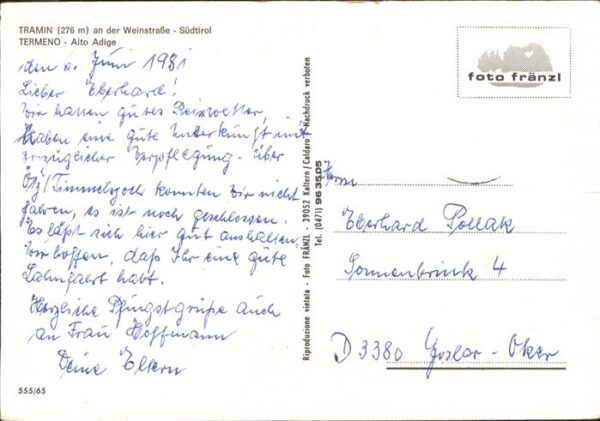 TRAMIN (276 m) an der Weinstraße - Südtirol
TERMENO - Alto Adige
den 6. Juni 1981
Lieber Eberhard!
Wir hatten gutes Reisewetter,
haben eine gute Unterkunft mit
vorzüglicher Verpflegung. Über
Ötz/Timmelsjoch konnten wir nicht
fahren, es ist noch geschlossen.
Es läßt sich hier gut aushalten.
Wir hoffen, daß Ihr eine gute
habt.
Herzliche Pfingstgrüße auch
an Frau Hoffmann
Deine Eltern
555/65
Riproduzione vietata - Foto FRÄNZL - 39052 Kaltern/Caldaro - Nachdruck verboten
Tel. (0471) 963505
foto fränzl
Herrn
Eberhard Pollak
Sonnenbrink 4
D 3380 Goslar - Oker